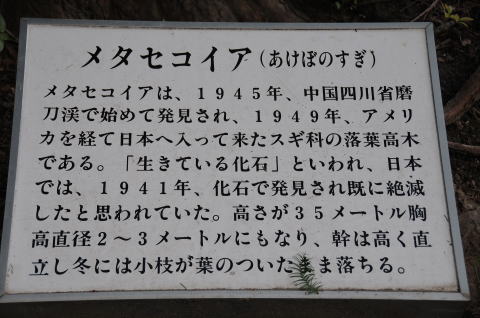 メタセコイア(あけぼのすぎ)
メタセコイアは、1945年、中国四川省磨
刀渓で始めて発見され、1949年、アメリ
カを経て日本へ入って来たスギ科の落葉高木
である。「生きている化石」といわれ、日本
では、1941年、化石で発見され既に絶滅
したと思われていた。高さが35メートル胸
高直径2～3メートルにもなり、幹は高く直
立し冬には小枝が葉のついたまま落ちる。